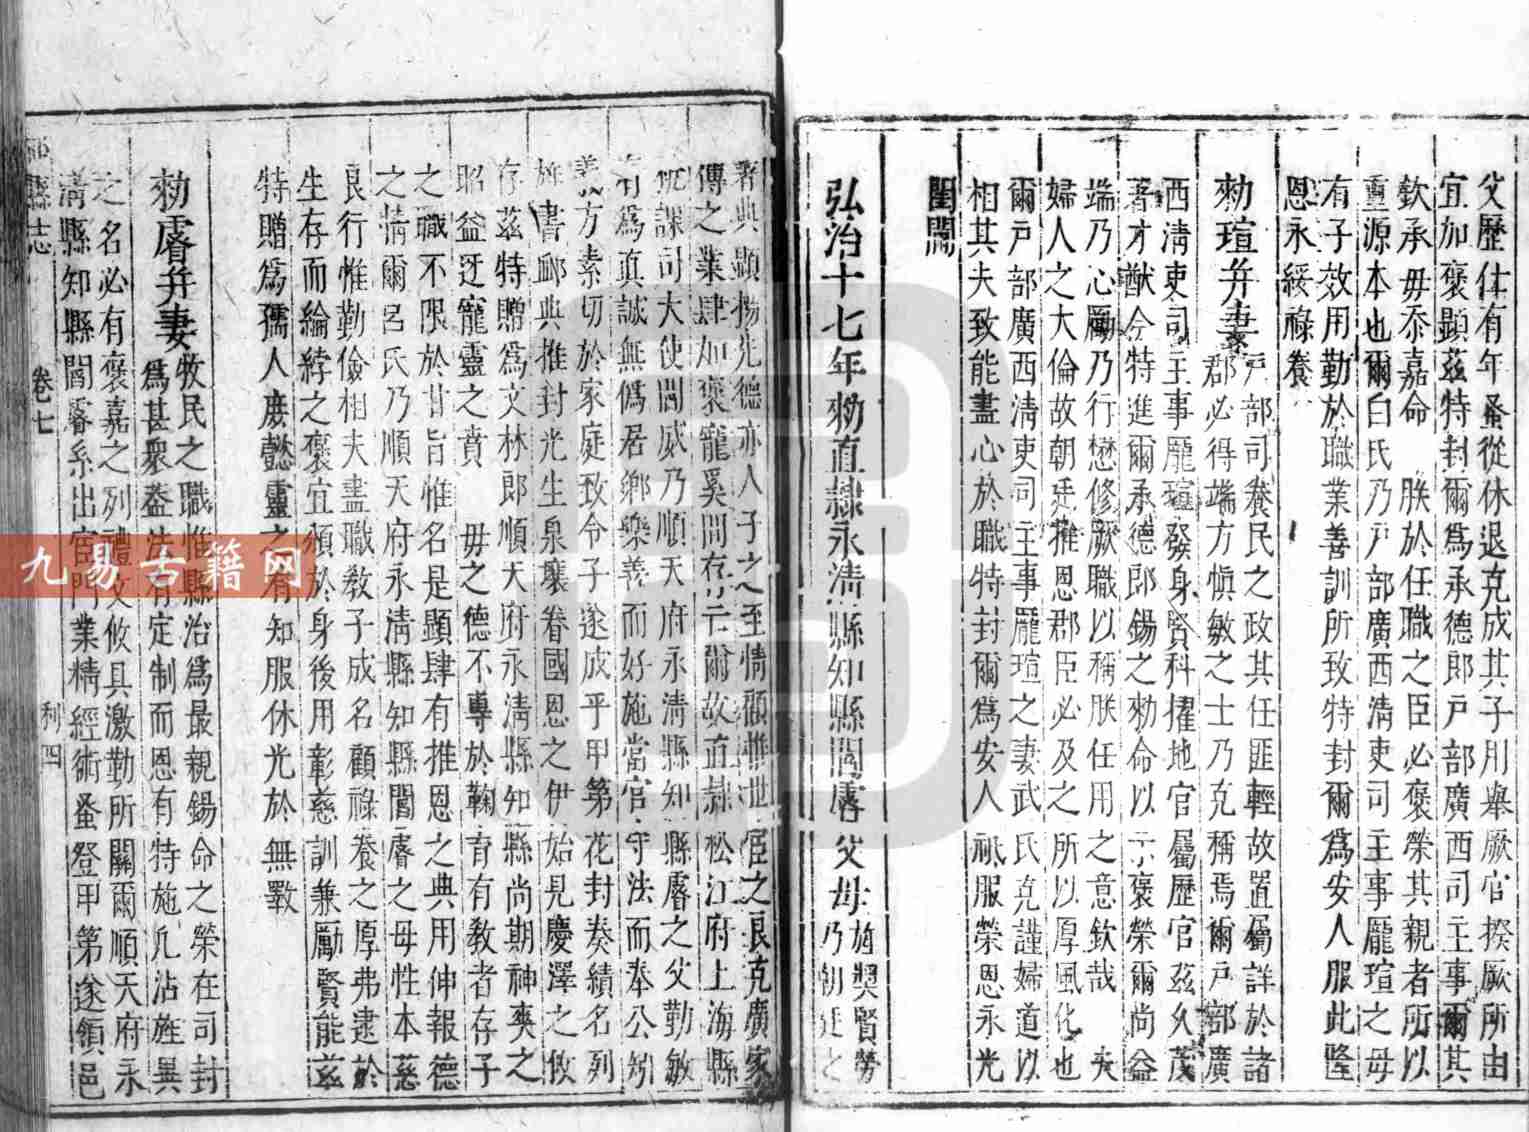 父歷仕有年蚤從休退克成其子用舉厥官揆厥所由
宜加褒顯茲特封爾爲承德郎戶部廣西司主事爾其
欽承毋忝嘉命　朕於任職之臣必褒榮其親者所以
重源本也爾白氏乃戶部廣西清吏司主事龐瑄之母
有子效用勤於職業善訓所致特封爾爲安人服此隆
恩永綏祿養
勑瑄并妻戶部司養民之政其任匪輕故置屬詳於諸
郡必得端方愼敏之士乃克稱焉爾戶部廣
西清吏司主事龐瑄發身賢科擢地官屬歷官茲久茂
著才猷今特進爾承德郎錫之勑命以示褒榮爾尚益
端乃心勵乃行懋修厥職以稱朕任用之意欽哉　夫
婦人之大倫故朝廷推恩郡臣必及之所以厚風化也
爾戶部廣西清吏司主事龐瑄之妻武氏克謹婦道以
相其夫致能盡心於職特封爾爲安人祗服榮恩永光
閨闈
弘治十七年勑直隸永清縣知縣閻睿父母旌奬賢勞
乃朝廷之
著典顯揚先德亦人子之至情顧惟世宦之良克廣家
傳之業肆加褒寵奚間存亡爾故直隸松江府上海縣
稅課司大使閻威乃順天府永清縣知縣睿之父勤敏
有爲眞誠無僞居鄉樂善而好施當官守法而奉公矧
義方素切於家庭致令子遂成乎甲第花封奏績名列
旌書鄙典推封光生泉壤眷國恩之伊始見慶澤之攸
存茲特贈爲文林郎順天府永清縣知縣尚期神爽之
昭益迓寵靈之賁　毋之德不專於鞠育有敎者存子
之職不限於甘旨惟名是顯肆有推恩之典用伸報德
之情爾呂氏乃順天府永清縣知縣閻睿之母性本慈
良行惟勤儉相夫盡職敎子成名顧祿養之厚弗逮於
生存而綸綍之褒宜頒於身後用彰慈訓兼勵賢能茲
特贈爲孺人庶懿靈之有知服休光於無斁
勑睿并妻牧民之職惟縣治爲最親錫命之榮在司封
爲甚衆益法有定制而恩有特施凡沾旌異
之名必有褒嘉之列禮文攸具激勸所關爾順天府永
清縣知縣閻睿系出宦門業精經術蚤登甲第遂領邑
縣志　卷七　利四
九易古籍网